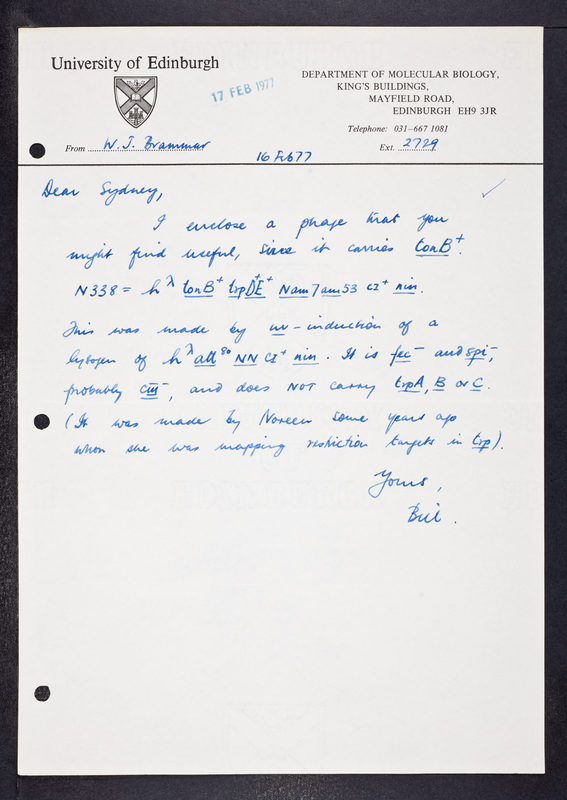 University of Edinburgh
17 FEB 1977
DEPARTMENT OF MOLECULAR BIOLOGY,
KING'S BUILDINGS,
MAYFIELD ROAD,
EDINBURGH EH9 3JR
Telephone: 031-667 1081
From W. J. Brammar
Ext. 2729
16 Feb 77
Dear Sydney,
I enclose a phage that you
might find useful, since it carries tonB⁺.
N338 = h λ tonB⁺ trpD⁺E⁺ Nam7am53 cI⁺ nin.
This was made by uv-induction of a
lysogen of h λ att 80 NN CI⁺ nin. It is fec⁻ and spi⁻,
probably cIII⁻, and does NOT carry trpA, B or C.
(It was made by Noreen some years ago
when she was mapping restriction targets in trp).
Yours,
Bill.